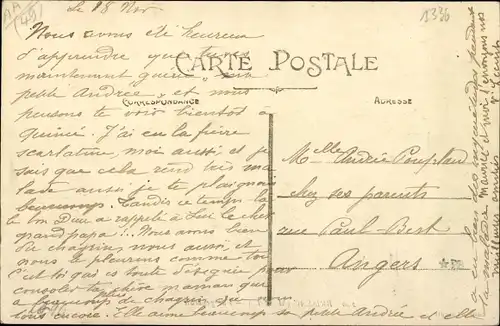 Le 18 Nov
1336
Nous avons été heureux
d'apprendre que tu es
maintenant guérie, ma
petite Andrée, et nous
pensons te voir bientôt à
J'ai eu la fièvre
scarlatine, moi aussi et je
sais que cela rend très ma-
lade aussi je te plaignais
beaucoup. Tandis ce temps là
le bon Dieu a rappelé à Lui le cher
grand papa! Nous avons bien
du chagrin, nous aussi et
nous le pleurons comme toi
C'est toi qui es toute désignée pour
consoler ta chère maman qui
a beaucoup de chagrin plus que
tous encore. Elle aime beaucoup sa petite Andrée et elle
CARTE POSTALE
CORRESPONDANCE
ADRESSE
Melle Andrée
chez ses parents
rue Paul Bert
Angers
a eu bien des inquiétudes pendant
sa maladie. Maurice et moi t'envoyons nos